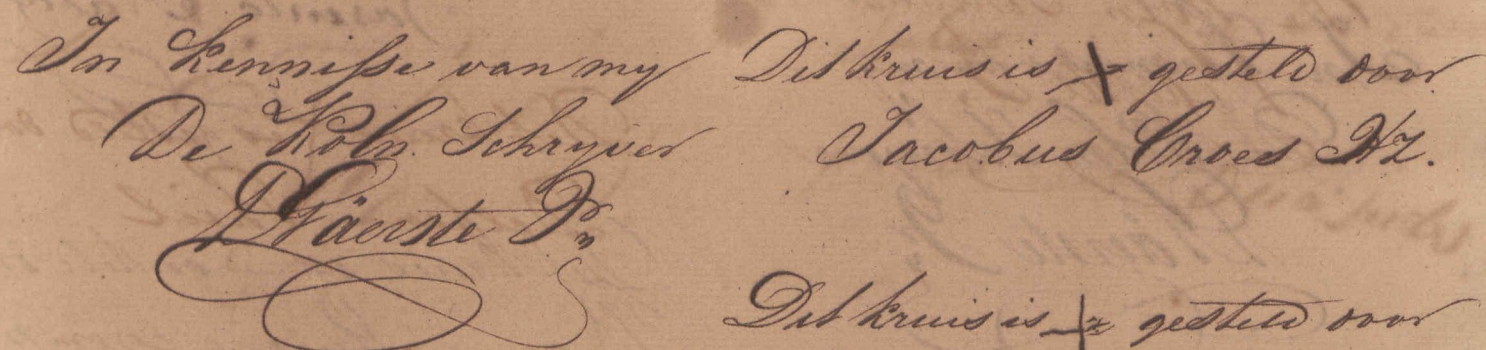 In kennisse van my
De Koln. Schryver
Dit kruis is X gesteld door
Jacobus Croes Hz.
Dit kruis is X gesteld door